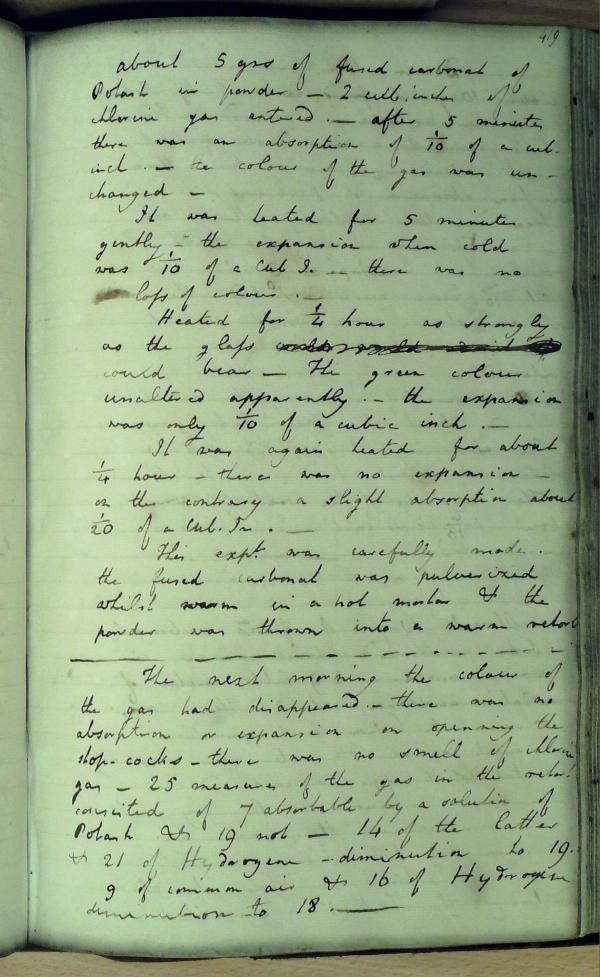 419
about 5 grs of fused carbonat of
Potash in powder - 2 cub. inches of
chlorine gas entered. - after 5 minutes
there was an absorption of 1/10 of a cub.
inch. - the colour of the gas was un-
changed -
It was heated for 5 minutes
gently - the expansion when cold
was 1/10 of a Cub I. - there was no
loss of colour. -
Heated for 1/4 hour as strongly
as the glass
could bear - The green colour
unaltered apparently. - the expansion
was only 1/10 of a cubic inch. -
It was again heated for about
1/4 hour - there was no expansion -
on the contrary a slight absorption about
1/20 of a Cub. In. -
This expt. was carefully made.
the fused carbonat was pulverized
whilst warm in a hot mortar & the
powder was thrown into a warm retort
The next morning the colour of
the gas had disappeared. - there was no
absorption or expansion on openning the
stop-cocks - there was no smell of chlorine
gas - 25 measures of the gas in the retort
consisted of 7 absorbable by a solution of
Potash & 19 not - 14 of the latter
& 21 of Hydrogene - diminution to 19.
9 of common air & 16 of Hydrogene
diminution to 18. -